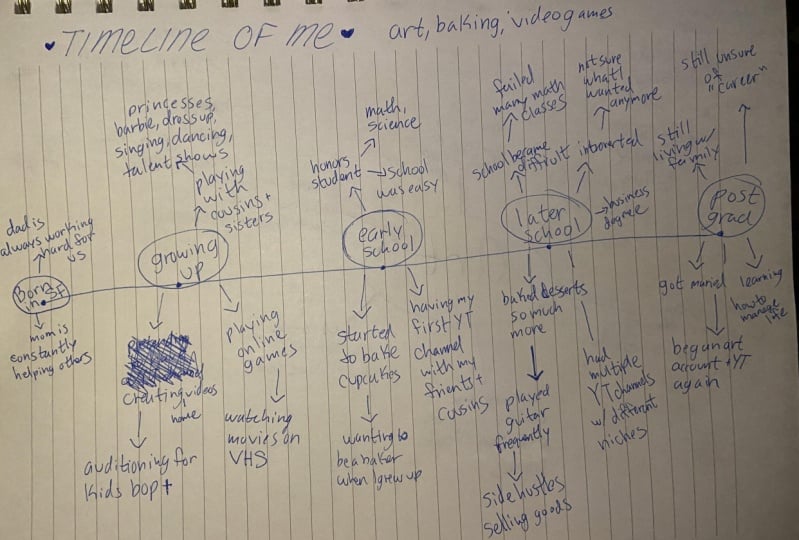 TIMELINE OF ME
art, baking, videogames
dad is
always working
hard for
us
Born
in SF
mom is
constantly
helping others
princesses,
barbie, dressup,
singing, dancing,
talent shows
playing
with
cousins +
sisters
growing
up
creating videos
home
auditioning for
Kids bop +
playing
online
games
watching
movies on
VHS
math,
science
honors
student
school
was easy
early
school
started
to bake
cupcakes
wanting to
be a baker
when I grew up
having my
first YT
channel
with my
frients +
cousins
failed
many math
classes
school became
difficult
not sure
what I
wanted
anymore
introverted
later
school
business
degree
baked desserts
so much
more
played
guitar
frequently
side hustles
selling goods
had
multiple
YT channels
w/ different
niches
still unsure
of
"career"
still
living w/
family
post
grad
got muriel
began art
account + YT
again
learning
how to
manage
life